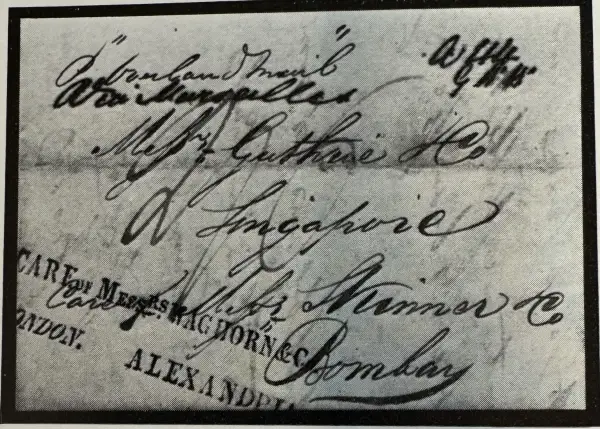 P "overland mail"
Via Marseilles
Messrs Guthrie & Co
Singapore
Care of Messrs Skinner & Co
Bombay
CARE OF MESSRS WAGHORN & C
ONDON.
ALEXANDRI